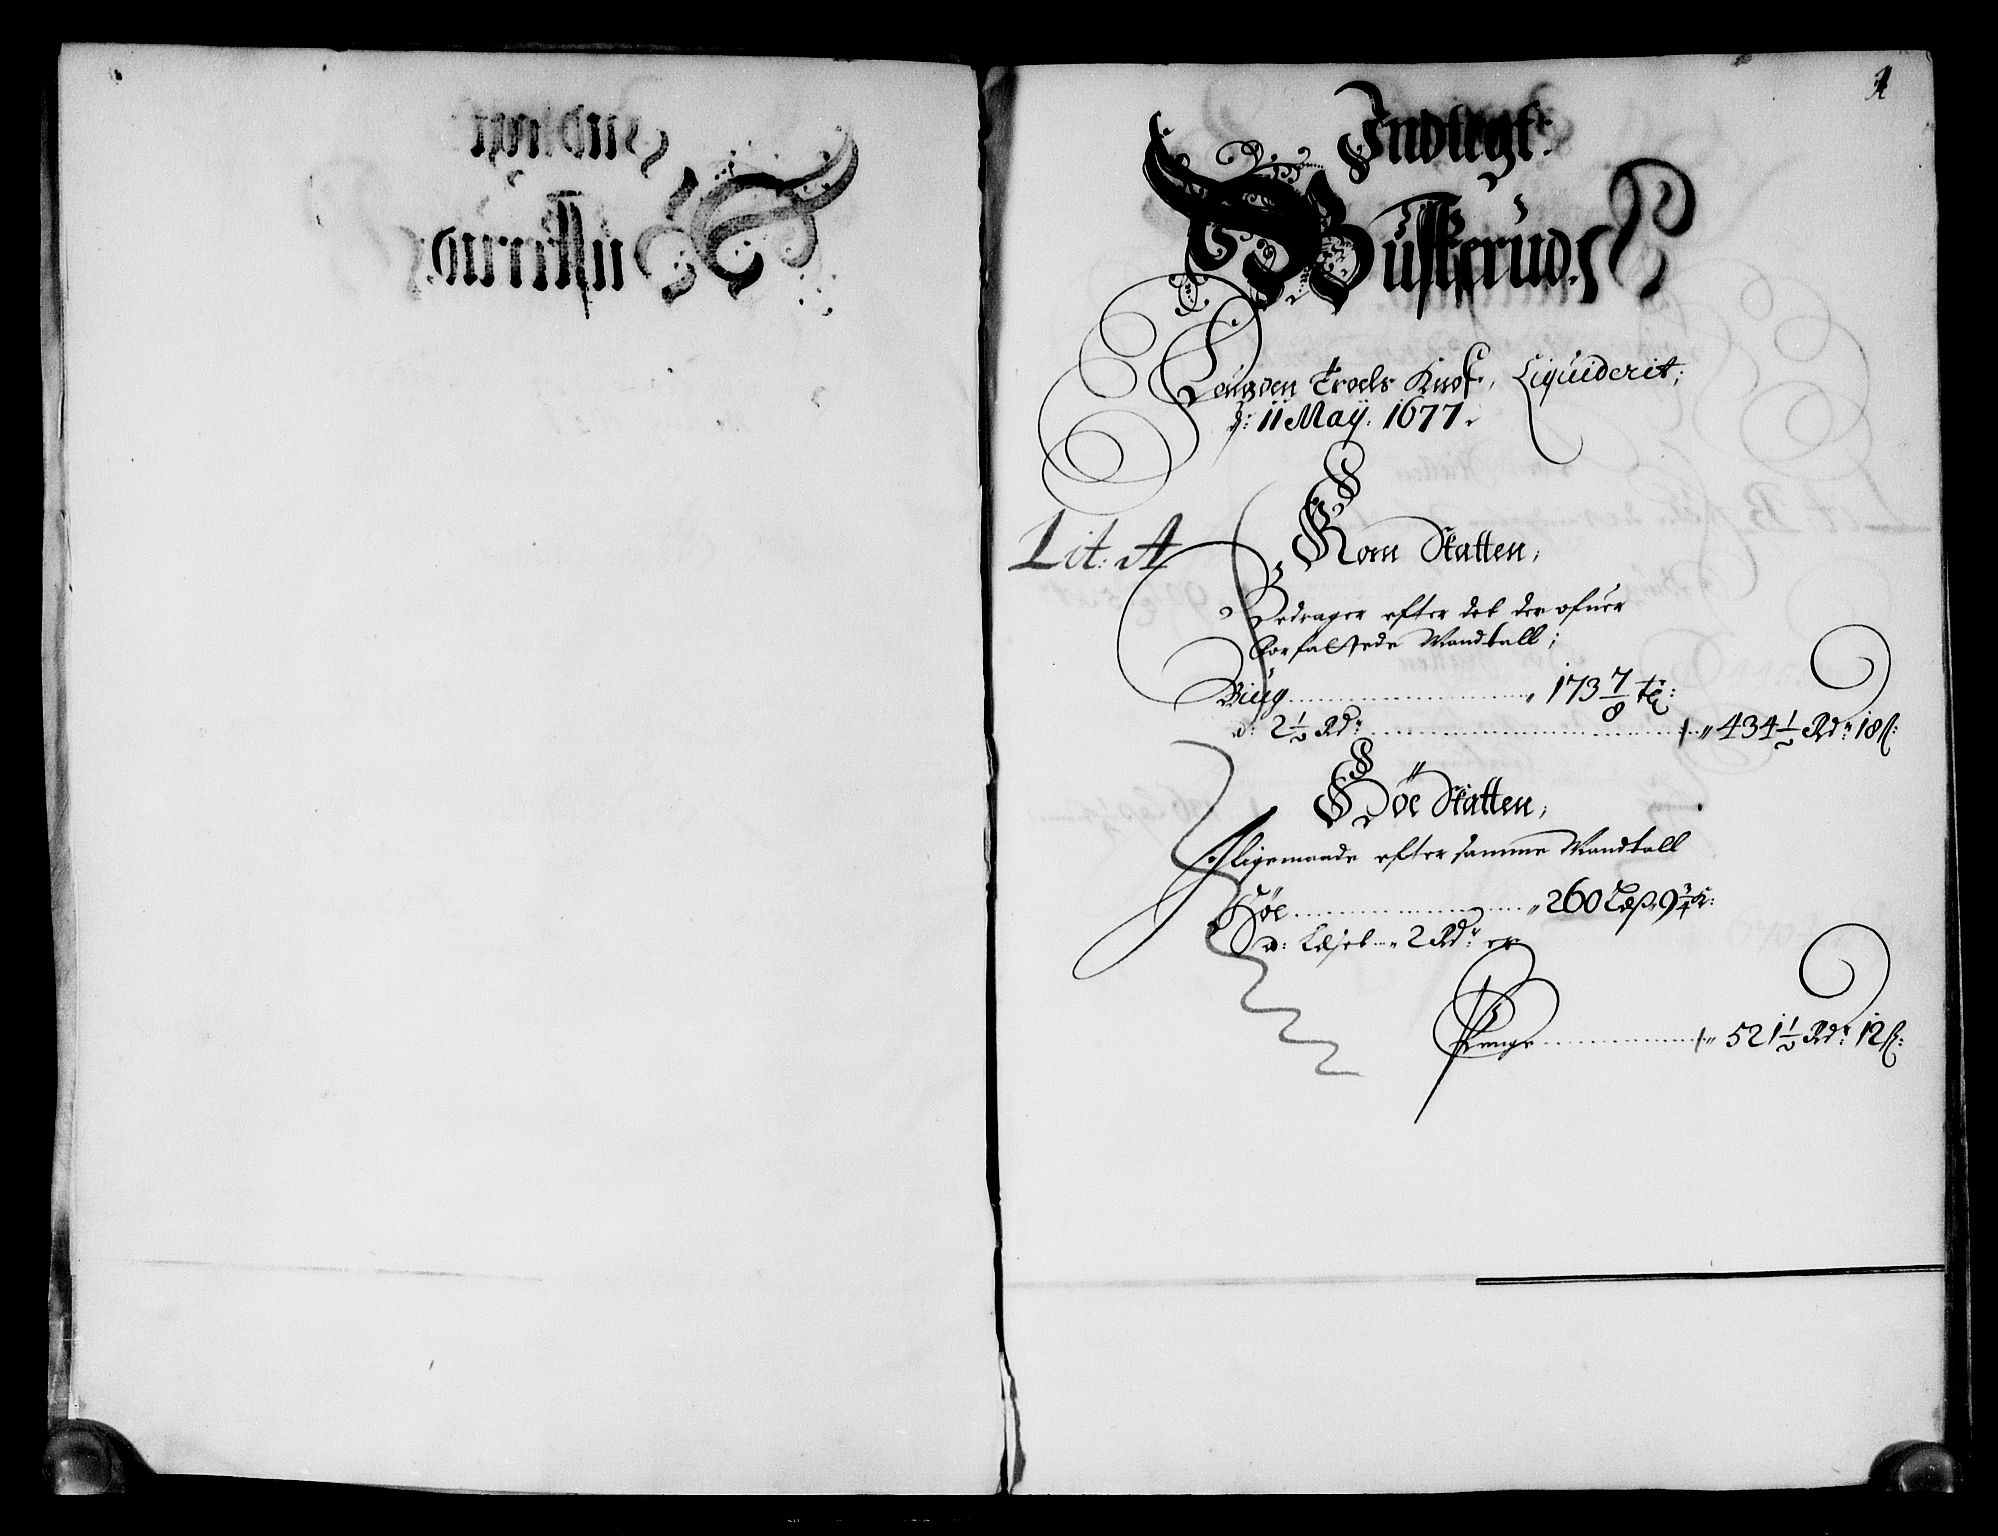 1
Indtegt.
Buskerud.
Fougden Troels Knof, Liquiderit,
d: 11 May. 1677.
Lit: A
Korn Skatten,
Bedrager efter det der ofuer
forfattede Mandtall;
Biug „ 173 7/8 tr:
a: 2 1/2 Rdr „ 434 1/2 Rdr 18 ß:
Höe Skatten,
Ligemaade efter samme Mandtall
Höe „ 260 Læs 9 3/4
a: Læset „ 2 Rdr er
Penge „ 521 1/2 Rdr 12 ß: